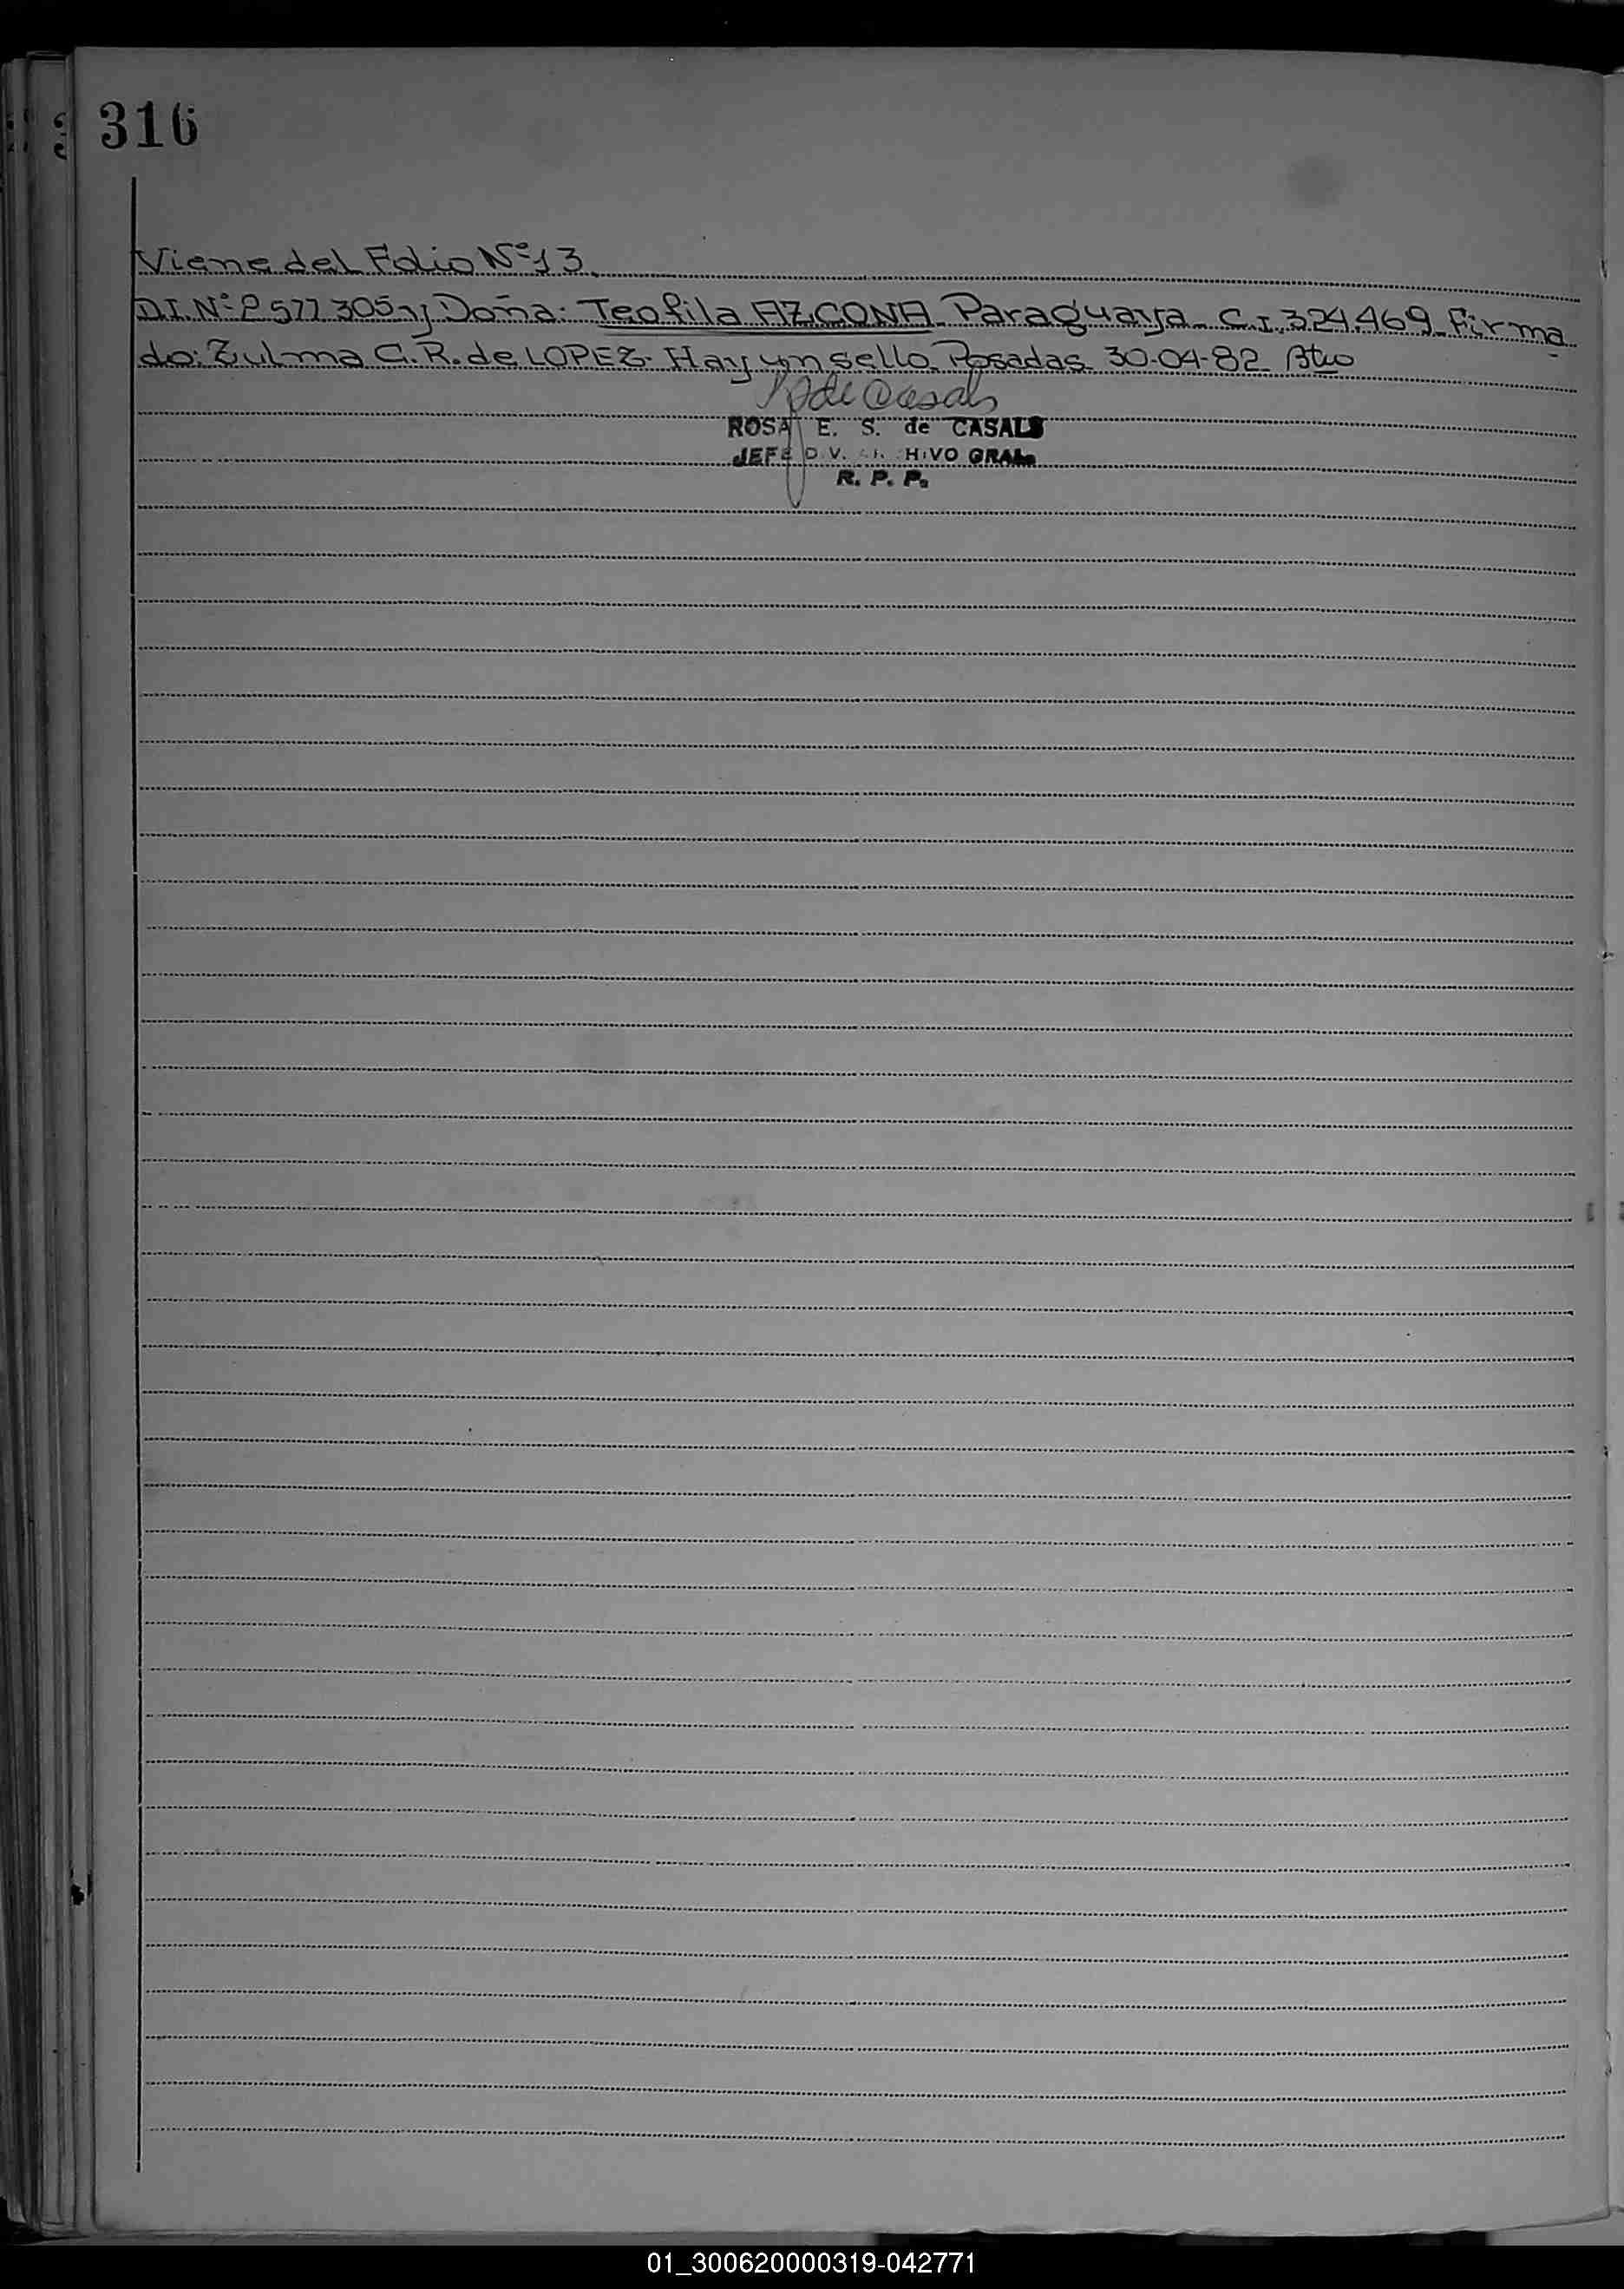 316
Viene del Folio Nº 13.
D.I. Nº 577305 y Doña: Teofila AZCONA Paraguaya - C.I. 324.469 - Firma
do: Zulma C. R. de LOPEZ - Hay un sello. Posadas 30-04-82
de Casals
ROSA E. S. de CASALS
JEFE DIV. HIVO GRAL.
R. P. P.
01_300620000319-042771